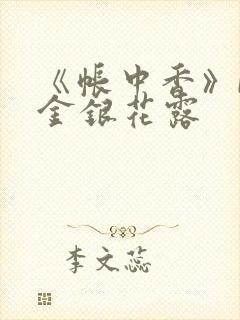 《帐中香》
金银花露
李文蕊